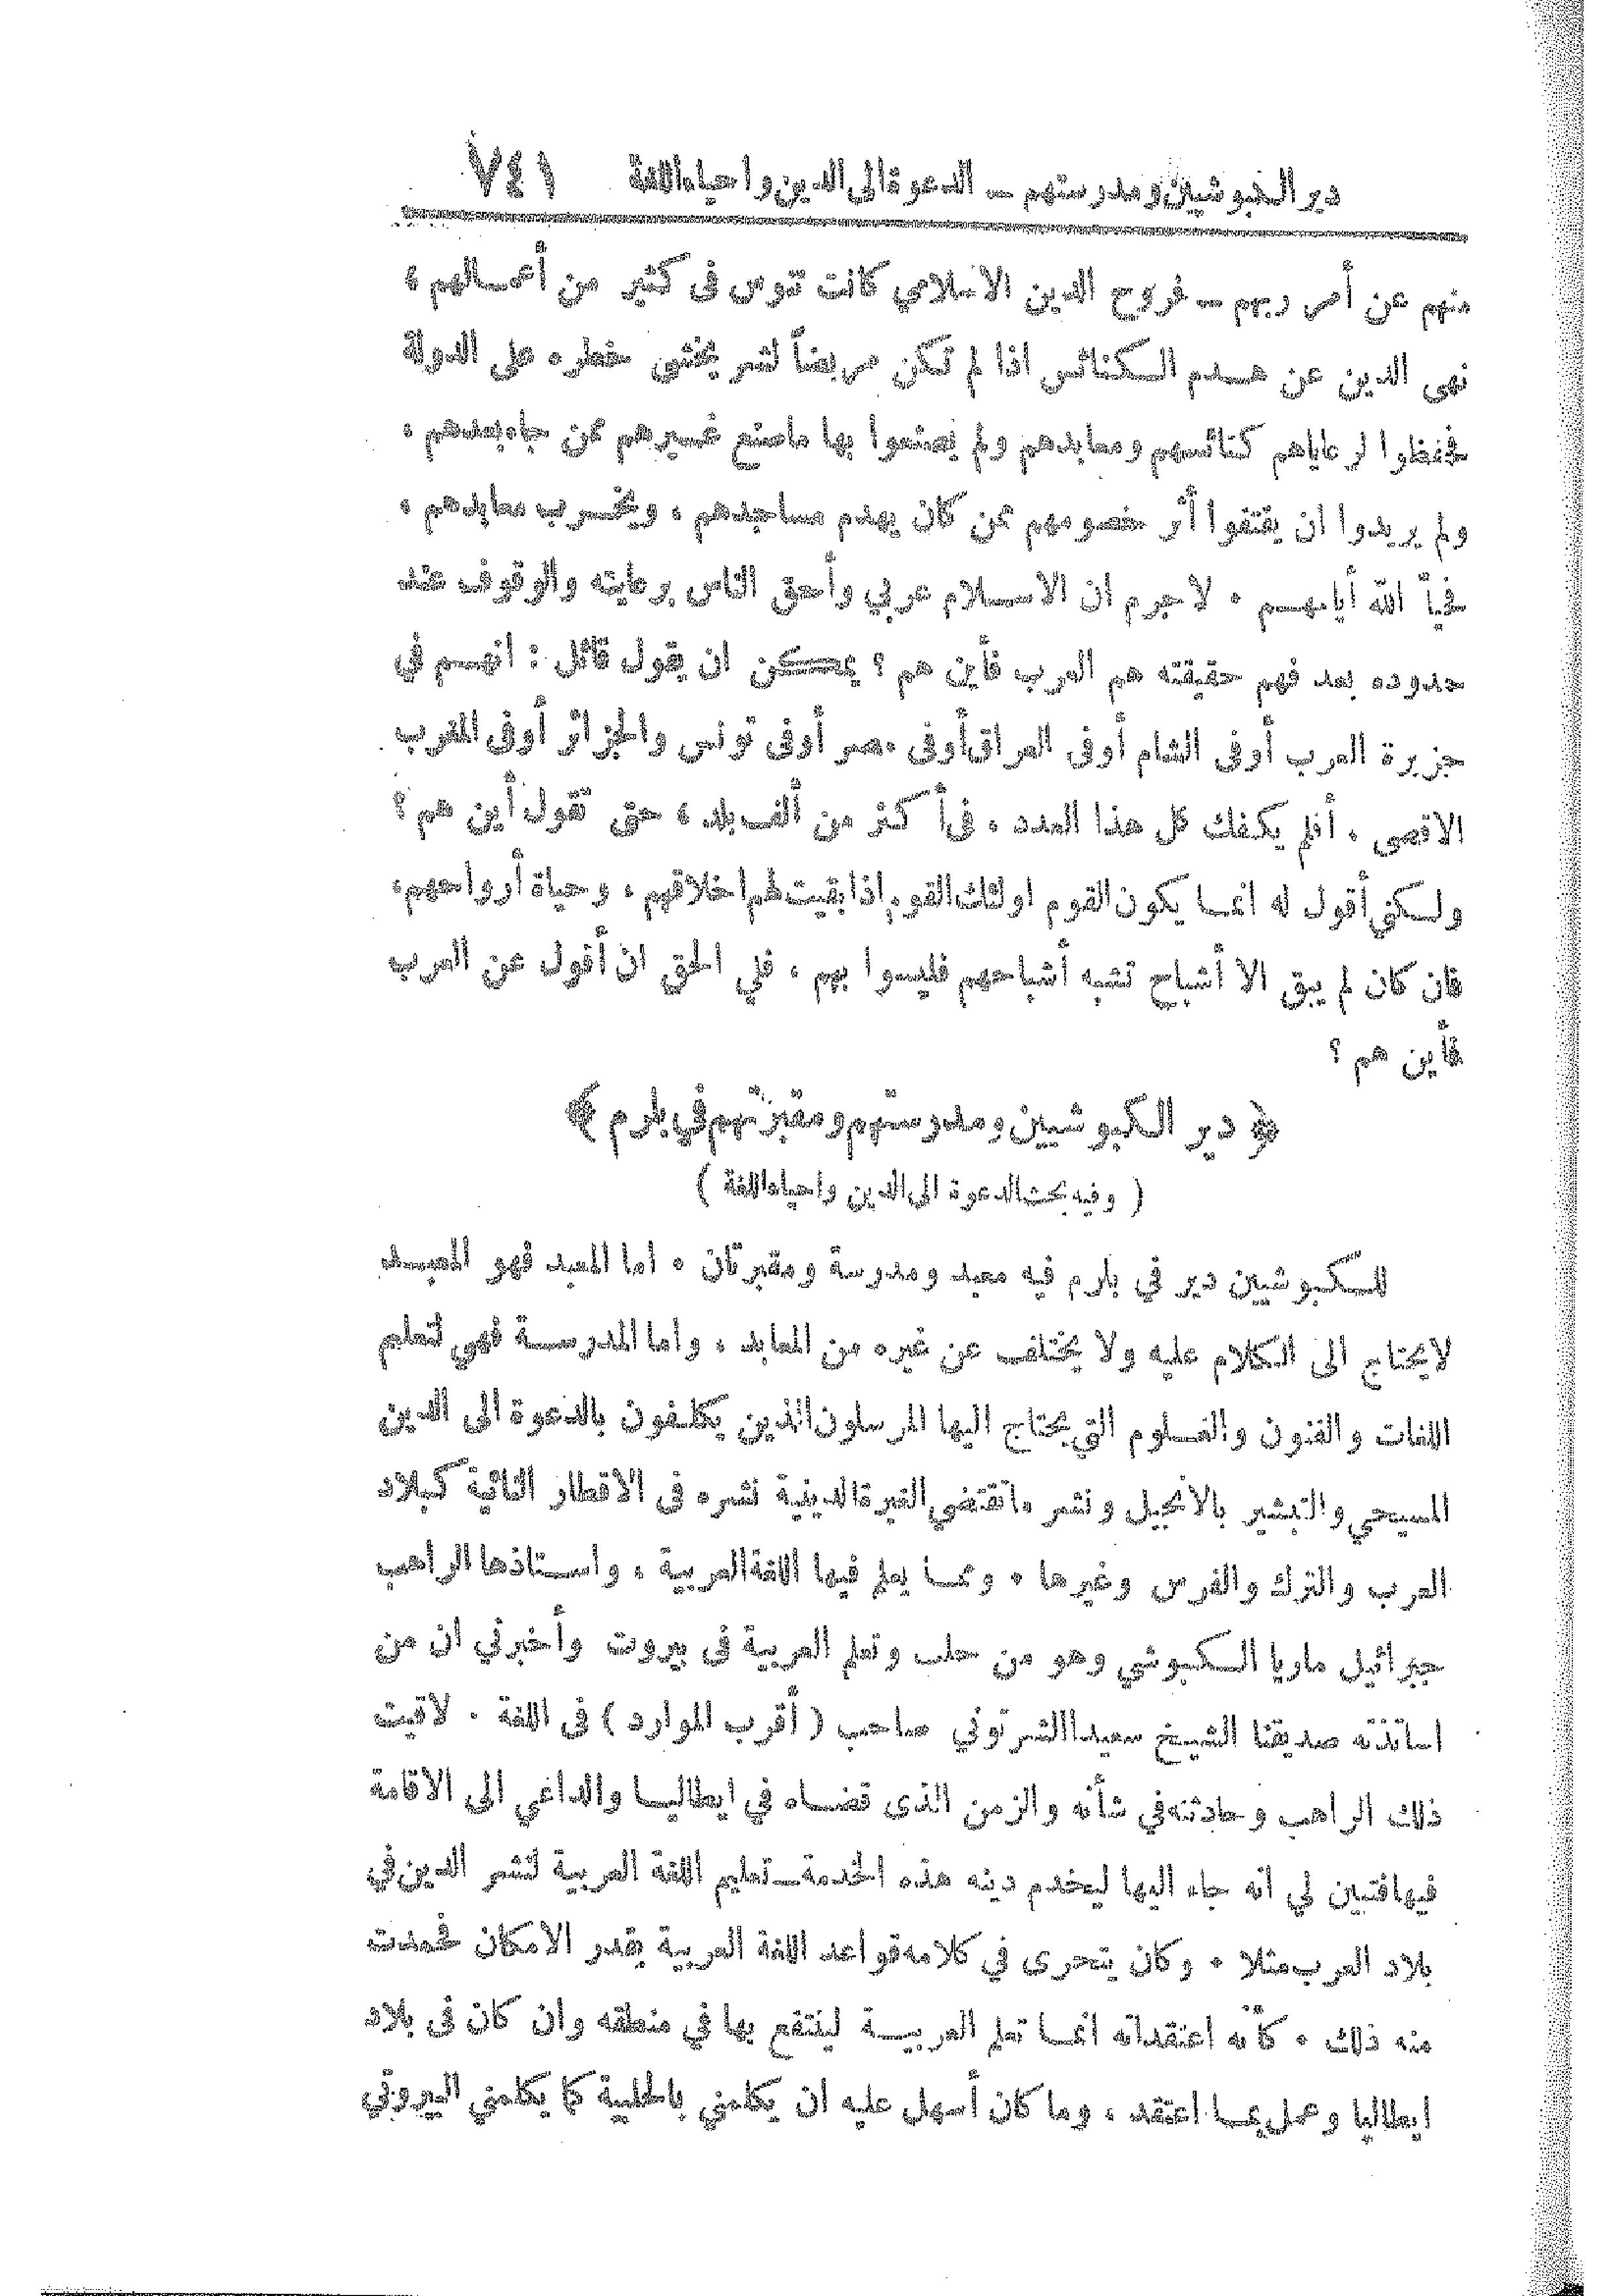 دير الخبوشيين ومدرستهم — الدعوة الى الدين واحياء اللغة ٧٤١
منهم عن أمر ربهم — فروح الدين الاسلامي كانت تنوس فى كثير من أعمالهم ،
نهى الدين عن هدم الكنائس اذا لم تكن مربضاً لشر يخشى خطره على الدولة
فحفظوا لرعاياهم كنائسهم ومعابدهم ولم يصنعوا بها ماصنع غيرهم ممن جاء بعدهم .
ولم يريدوا ان يقتفوا أثر خصومهم ممن كان يهدم مساجدهم ، ويخرب معابدهم .
فحيا الله أيامهم . لاجرم ان الاسلام عربي وأحق الناس برعايته والوقوف عند
حدوده بعد فهم حقيقته هم العرب فأين هم ؟ يمكن ان يقول قائل : انهم في
جزيرة العرب أوفى الشام أوفى العراق أوفى مصر أوفى تونس والجزائر أوفى المغرب
الاقصى . أفلم يكفك كل هذا العدد . فى أكثر من ألف بلد ، حتى تقول أين هم ؟
ولكني أقول له انما يكون القوم اولئك القوم اذا بقيت لهم اخلاقهم . وحياة أرواحهم ،
فان كان لم يبق الا أشباح تشبه أشباحهم فليسوا بهم . فلي الحق ان أقول عن العرب
فأين هم ؟
﴿ دير الكبوشيين ومدرستهم ومقبرتهم في بلرم ﴾
( وفيه بحث الدعوة الى الدين واحياء اللغة )
للكبوشيين دير في بلرم فيه معبد ومدرسة ومقبرتان . اما المعبد فهو المعبد
لايحتاج الى الكلام عليه ولا يختلف عن غيره من المعابد . واما المدرسة فهي لتعليم
اللغات والفنون والعلوم التي يحتاج اليها المرسلون الذين يكلفون بالدعوة الى الدين
المسيحي والتبشير بالانجيل ونشر ماتقتضي الغيرة الدينية نشره فى الاقطار النائية كبلاد
العرب والترك والفرس وغيرها . ومما يعلم فيها اللغة العربية . واستاذها الراهب
جبرائيل ماريا الكبوشي وهو من حلب وتعلم العربية فى بيروت وأخبرني ان من
اساتذته صديقنا الشيخ سعيدا الشرتوني صاحب ( أقرب الموارد ) فى اللغة . لاقيت
ذلك الراهب وحادثته في شأنه والزمن الذى قضاه في ايطاليا والداعي الى الاقامة
فيها فتبين لي انه جاء اليها ليخدم دينه هذه الخدمة — تعليم اللغة العربية لنشر الدين في
بلاد العرب مثلا . وكان يتحرى في كلامه قواعد اللغة العربية بقدر الامكان فحمدت
منه ذلك . كأنه اعتقد انه انما تعلم العربية لينتفع بها في منطقه وان كان فى بلاد
ايطاليا وعمل بما اعتقد . وما كان أسهل عليه ان يكلمني بالحلبية كما يكلمني البيروتي